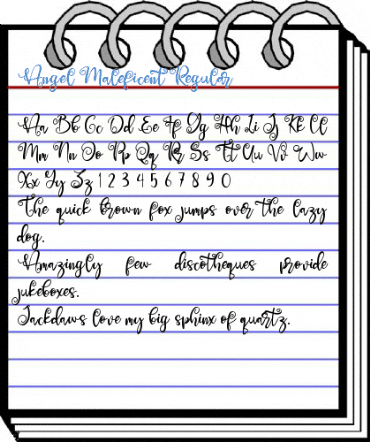 Angel Maleficent Regular
Aa Bb Cc Dd Ee Ff Gg Hh Ii Jj Kk Ll
Mm Nn Oo Pp Qq Rr Ss Tt Uu Vv Ww
Xx Yy Zz 1 2 3 4 5 6 7 8 9 0
The quick brown fox jumps over the lazy
dog.
Amazingly few discotheques provide
jukeboxes.
Jackdaws love my big sphinx of quartz.